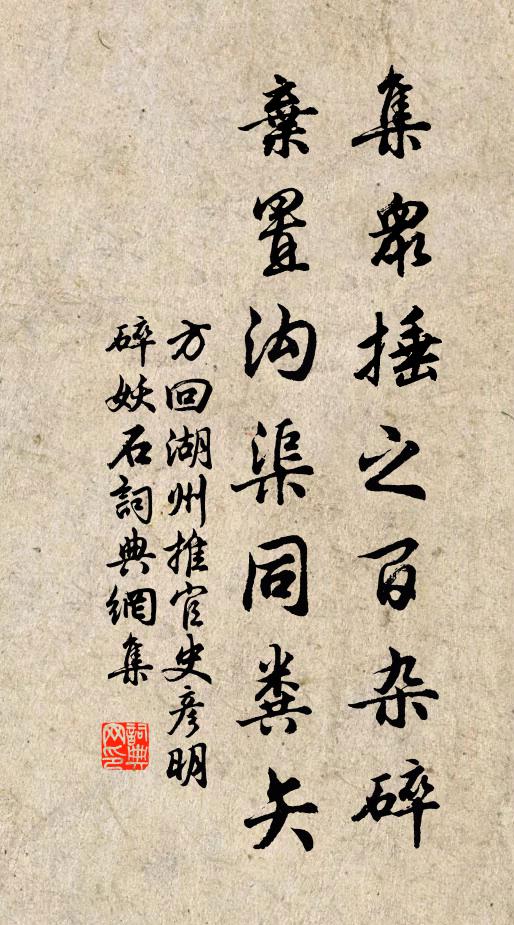 集眾捶之百杂碎
棄置沟渠同糞矢
方回湖州推官史彦明
碎妖石詞典網集
詞典
网印